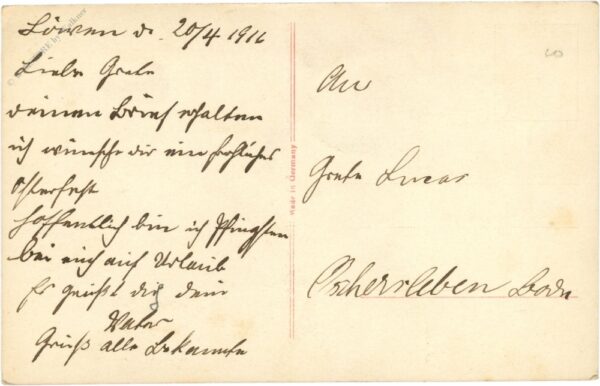 Löwen d. 20/4 1916
Liebe Grete
deinen Brief erhalten
ich wünsche dir ein frohliches
Osterfest
hoffentlich bin ich Pfingsten
bei euch auf Urlaub
Es grüßt dich dein
Vater
Gruß alle Bekannte
An
Grete Lucas
Oschersleben Bode
Made in Germany